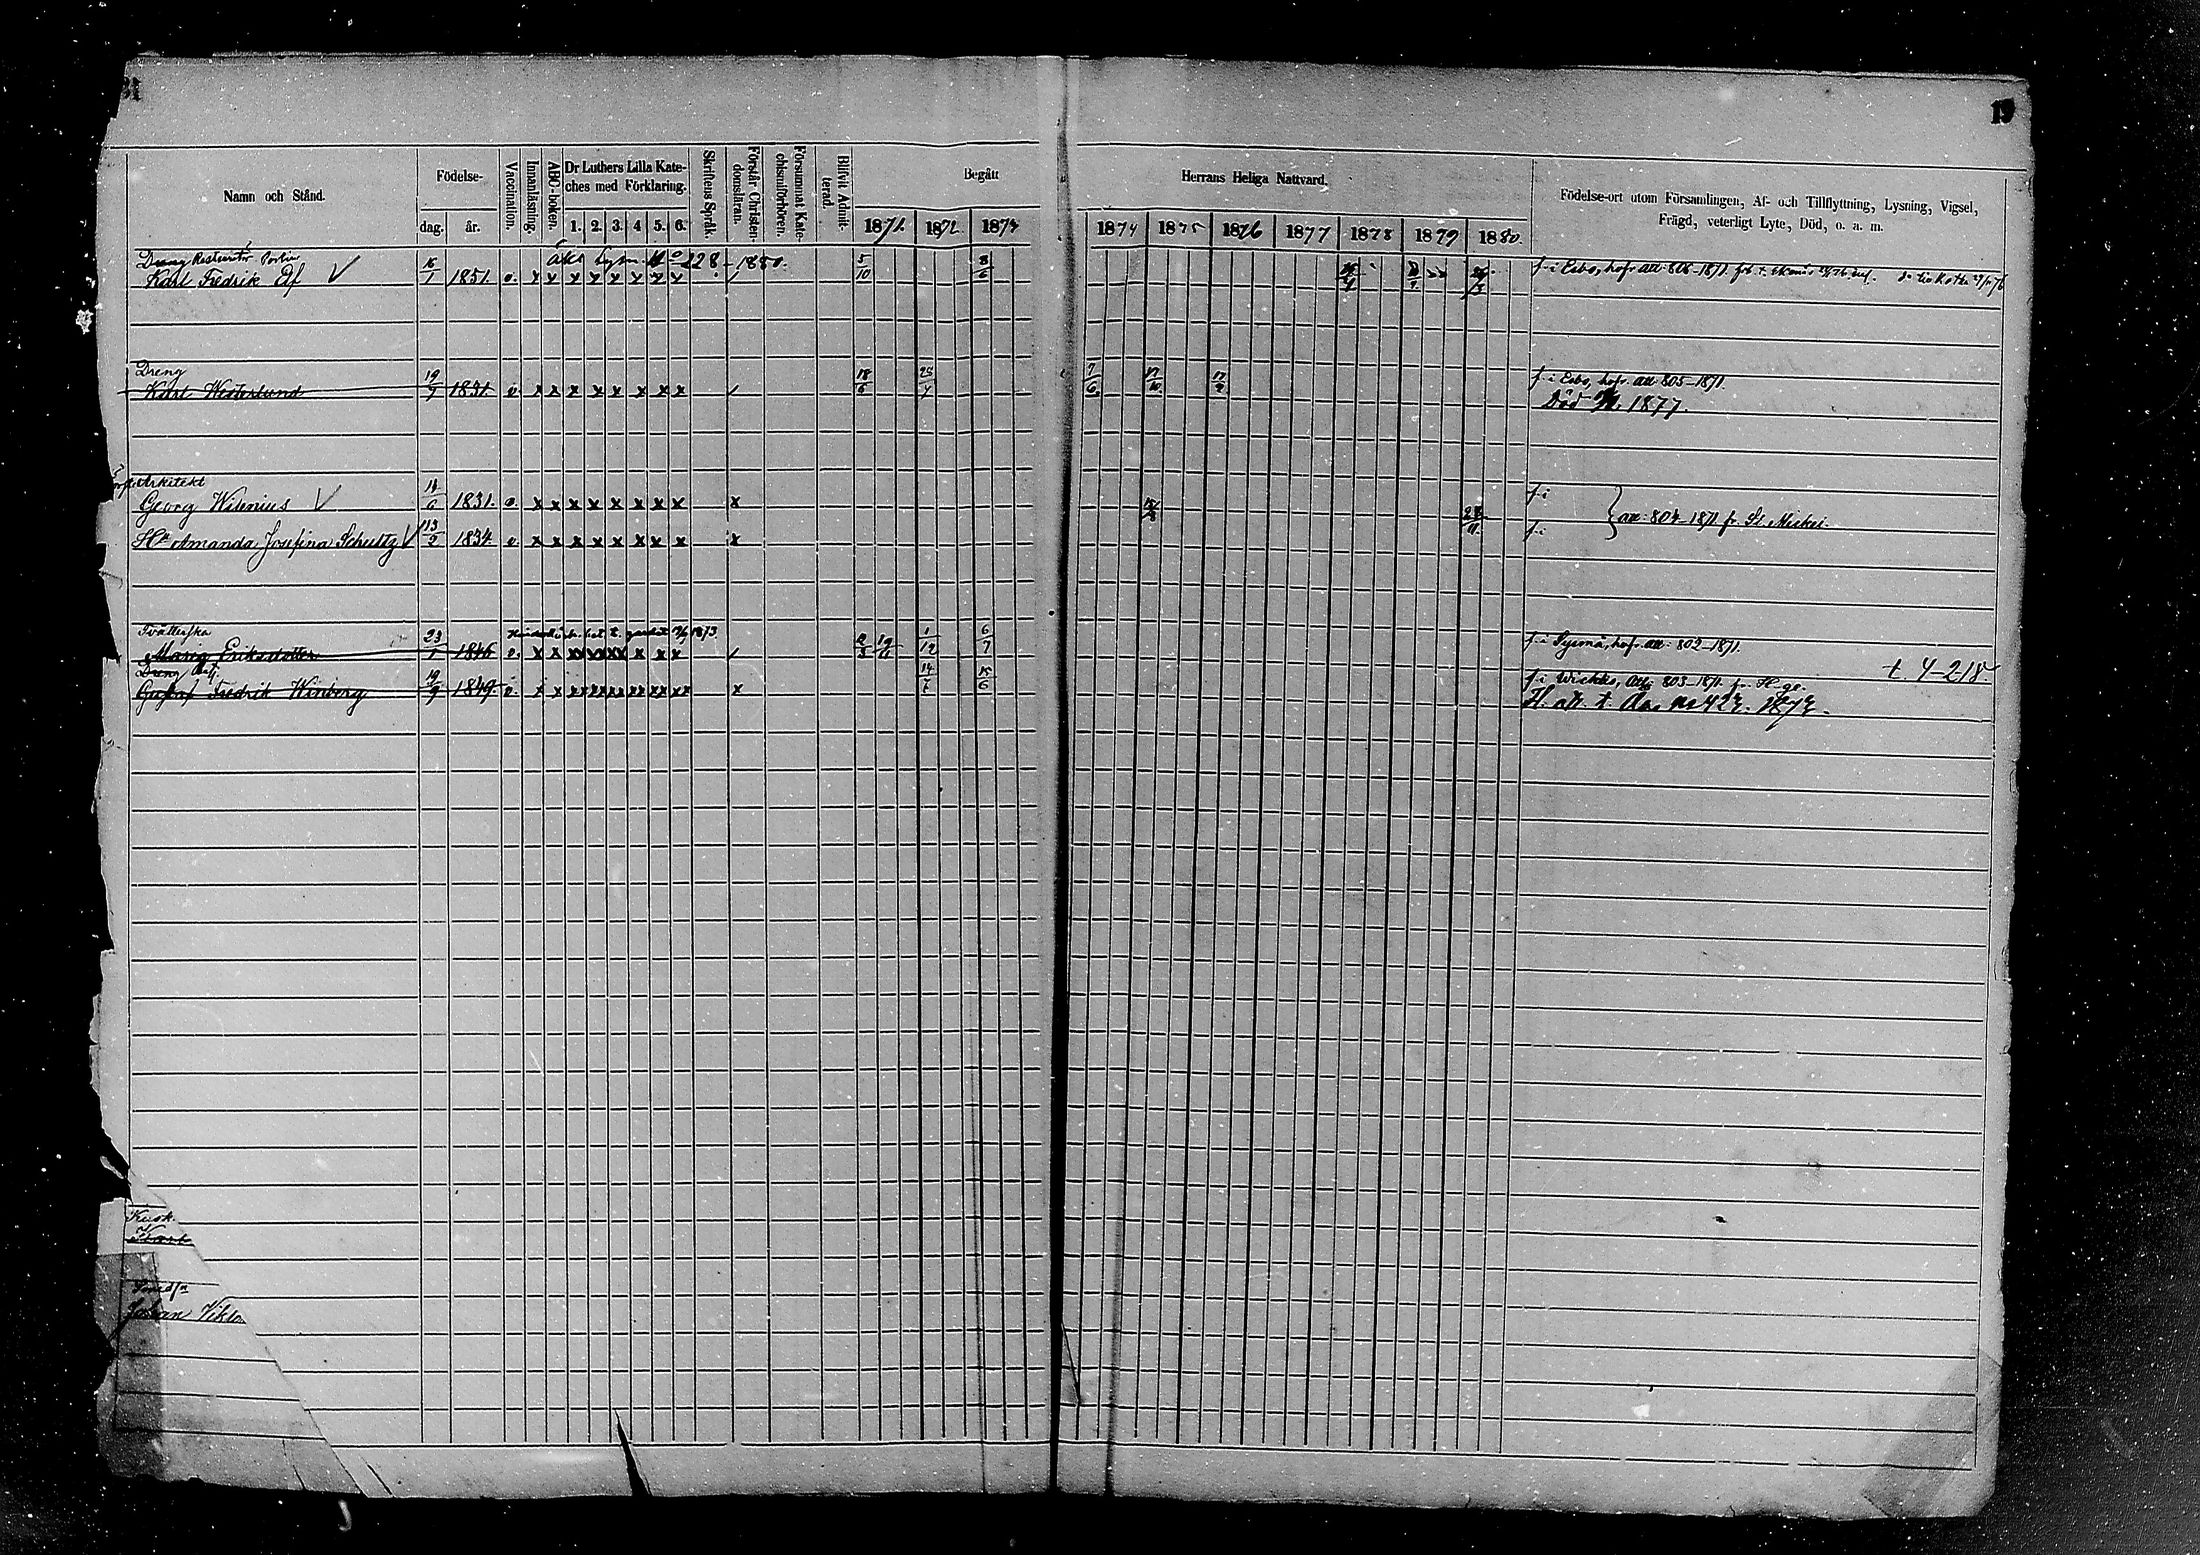 31
19
Namn och Stånd.
Födelse-
dag.
år.
Vaccination.
Innanläsning.
ABC-boken.
Dr Luthers Lilla Kate-
ches med Förklaring.
1. 2. 3. 4 5. 6.
Skriftens Språk.
Förstår Christen-
domsläran.
Försummat Kate-
chismiförhören.
Blifvit Admit-
terad.
Begått
1871. 1872. 1873
Herrans Heliga Nattvard.
1874 1875 1876 1877 1878 1879 1880.
Födelse-ort utom Församlingen, Af- och Tillflyttning, Lysning, Vigsel,
Frägd, veterligt Lyte, Död, o. a. m.
Dreng
228-1880.
Karl Fredrik Elf V 16/1 1851. v. x x x x x x x x / 5/10 8/6 f. i Esbo, hofr. att. 806-1871.
Dreng
Karl Westerlund 19/9 1831. v. x x x x x x x x / 18/6 7/6 17/10 f. i Esbo, hofr. att. 805-1871.
Död 1877.
Arkitekt
Georg Wilenius V 1831. v. x x x x x x x x x f. i
att. 804-1871 fr. St. Mickel.
Hu Amanda Josefina Schultz V 13/2 1834 v. x x x x x x x x x f. i
Tvätterska
1873.
Maria Eriksdotter 23/1 1846 v. 1/12 6/7 f. i Sysmä, hofr. att. 802-1871.
Dreng
t. 4-218
Gustaf Fredrik Winberg 19/9 1849. v. x 14/7 15/6 f. i Wichtis, att. 803-1871. fr. H-ge.
Kusk.
Karl
Johan Vikto